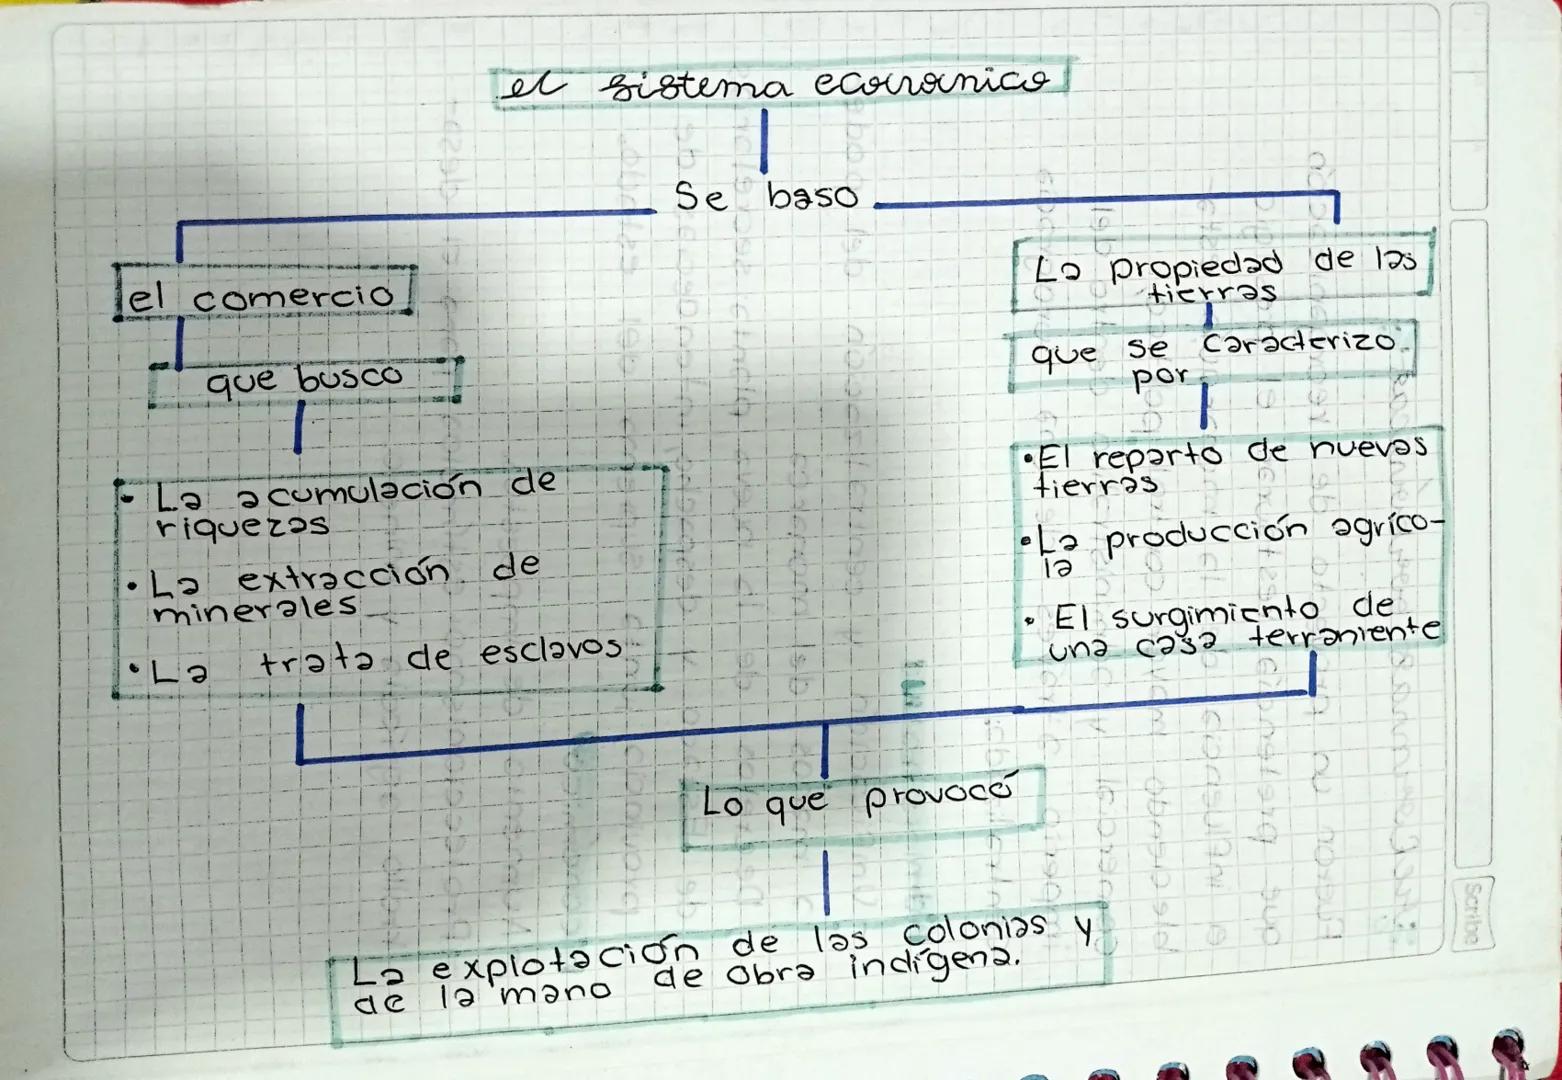 el sistema económico
Se baso
el comercio
La propiedad de las
tierras
que busco
que se caracterizo
por
• La acumulación de
riquezas
• La extracción de
minerales
• La trata de esclavos
• El reparto de nuevas
tierras
• La producción agríco-
la
• El surgimiento de
una casa terraniente
Lo que provocó
La explotación de las colonias y
de la mano de obra indígena.
Scribe